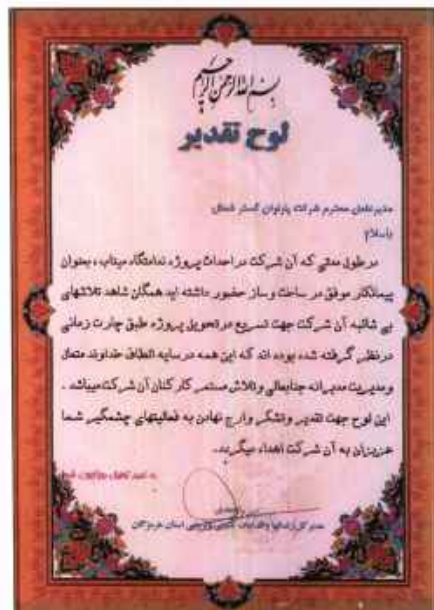 بسم الله الرحمن الرحیم
لوح تقدیر
مدیرعامل محترم شرکت پارتوان گستر شمال
باسلام
در طول مدتی که آن شرکت در احداث پروژه ندامتگاه میناب ، بعنوان
پیمانکار موفق در ساخت وساز حضور داشته اید همگان شاهد تلاشهای
بی شائبه آن شرکت جهت تسریع در تحویل پروژه طبق چارت زمانی
در نظر گرفته شده بوده اند که این همه در سایه الطاف خداوند متعال
و مدیریت مدبرانه جنابعالی و تلاش مستمر کارکنان آن شرکت میباشد .
این لوح جهت تقدیر وتشکر وارج نهادن به فعالیتهای چشمگیر شما
عزیزان به آن شرکت اهداء میگردد.
به امید
مدیرکل زندانها واقدامات تامینی وتربیتی استان هرمزگان